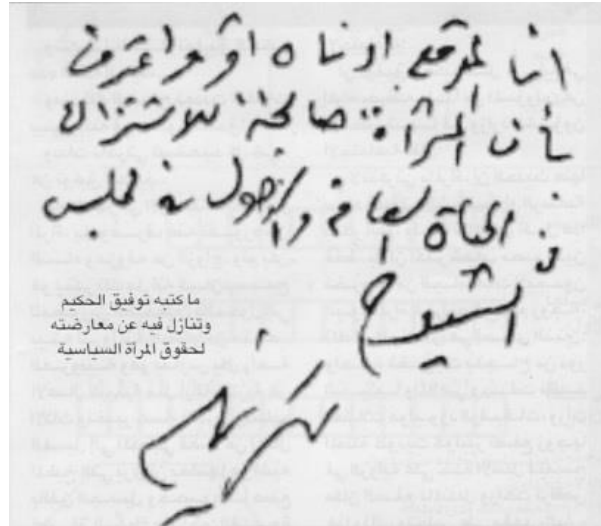 أنا الموقع أدناه أقر وأعترف
بأن المرأة صالحة للاشتراك
في الحياة العامة والدخول في مجلس
الشيوخ
ما كتبه توفيق الحكيم
وتنازل فيه عن معارضته
لحقوق المرأة السياسية